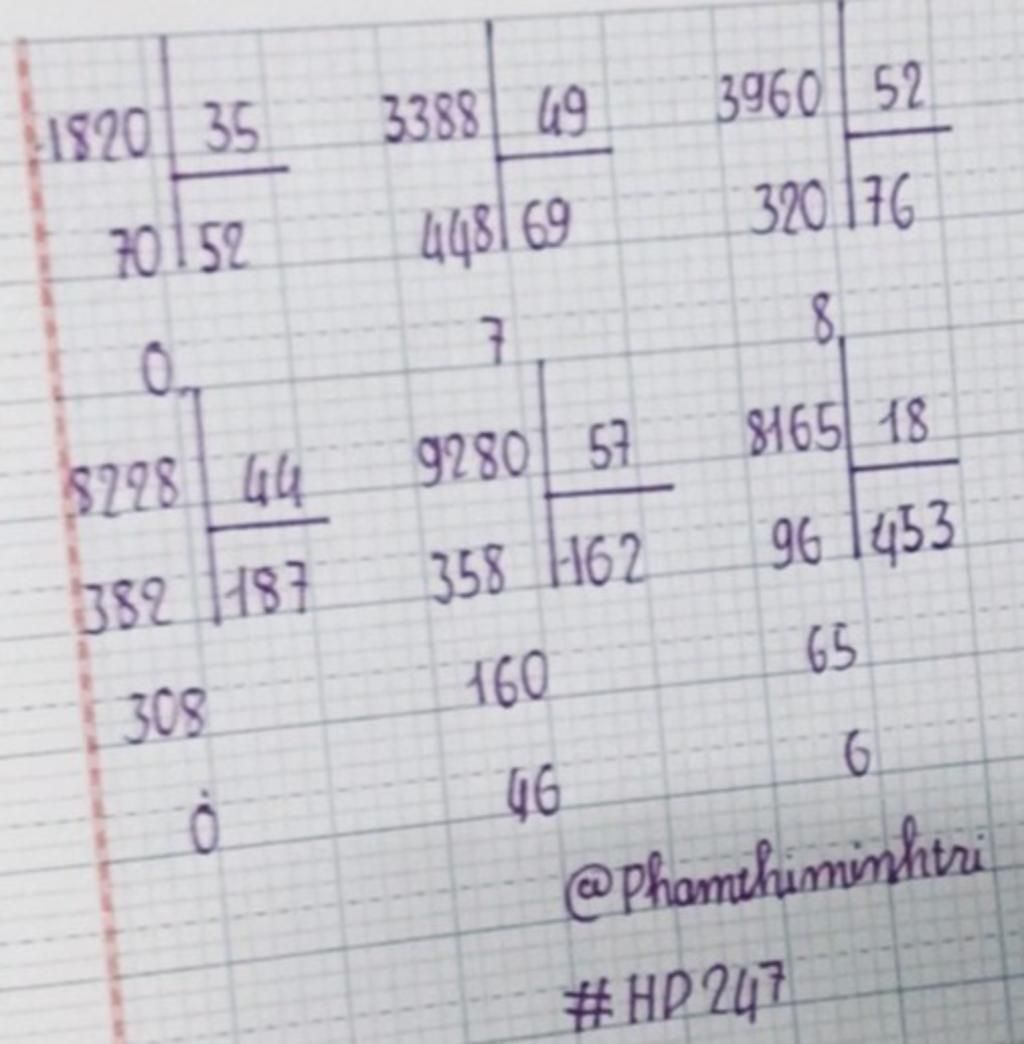 1820 35 3388 49 3960 52
70 52 448 69 320 76
0 7 8
8228 44 9280 57 8165 18
382 187 358 162 96 453
308 160 65
0 46 6
@Phamchiminhtri
#HD247